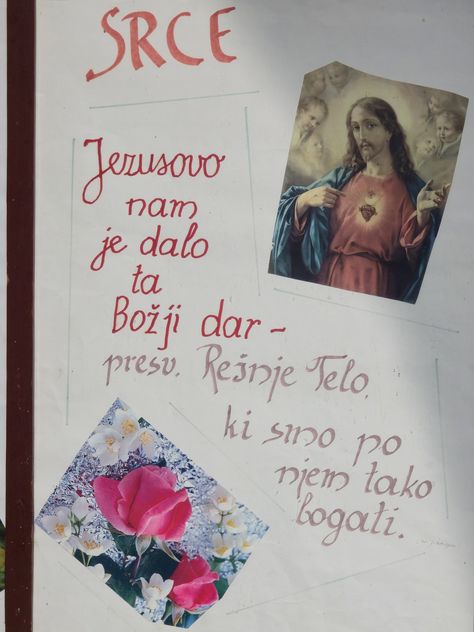 SRCE
Jezusovo
nam
je dalo
ta
Božji dar -
presv. Rešnje Telo,
ki smo po
njem tako
bogati.